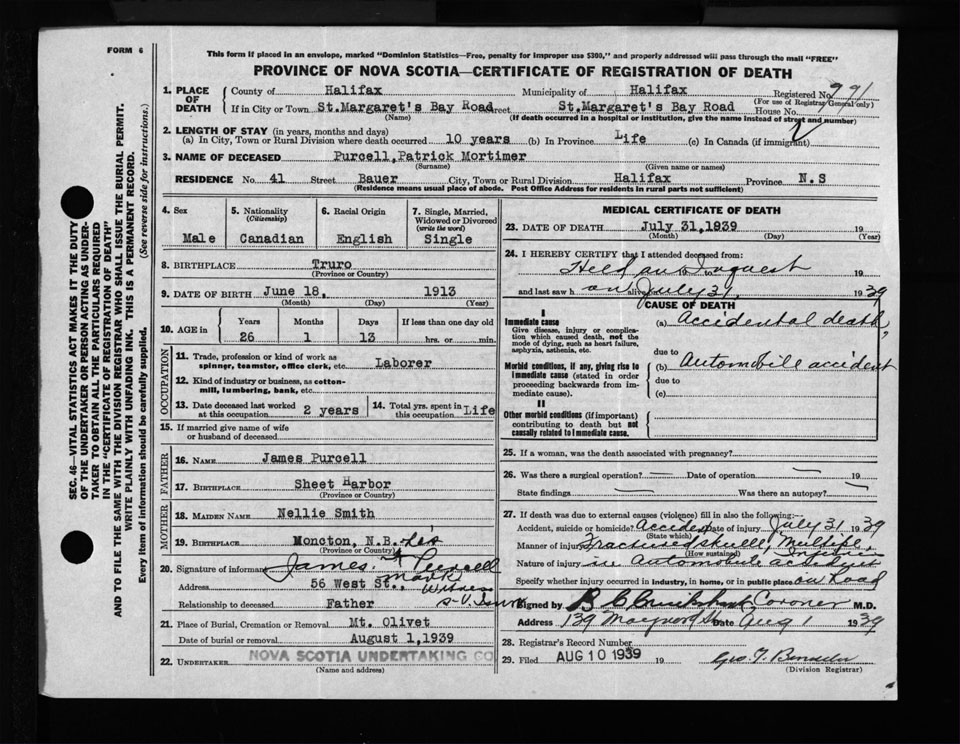 FORM 6
This form if placed in an envelope, marked "Dominion Statistics—Free, penalty for improper use $300," and properly addressed will pass through the mail "FREE"
PROVINCE OF NOVA SCOTIA—CERTIFICATE OF REGISTRATION OF DEATH
SEC. 46—VITAL STATISTICS ACT MAKES IT THE DUTY
OF THE UNDERTAKER OR PERSON ACTING AS UNDER-
TAKER TO OBTAIN ALL THE PARTICULARS REQUIRED
IN THE "CERTIFICATE OF REGISTRATION OF DEATH"
AND TO FILE THE SAME WITH THE DIVISION REGISTRAR WHO SHALL ISSUE THE BURIAL PERMIT.
WRITE PLAINLY WITH UNFADING INK. THIS IS A PERMANENT RECORD.
Every item of information should be carefully supplied. (See reverse side for instructions.)
1. PLACE OF DEATH
County of Halifax Municipality of Halifax Registered No. 991
(For use of Registrar General only)
If in City or Town St.Margaret's Bay Road Street St.Margaret's Bay Road House No.
(Name) (If death occurred in a hospital or institution, give the name instead of street and number)
2. LENGTH OF STAY (in years, months and days)
(a) In City, Town or Rural Division where death occurred 10 years (b) In Province Life (c) In Canada (if immigrant)
3. NAME OF DECEASED Purcell, Patrick Mortimer
(Surname) (Given name or names)
RESIDENCE No. 41 Street Bauer City, Town or Rural Division Halifax Province N.S
(Residence means usual place of abode. Post Office Address for residents in rural parts not sufficient)
4. Sex Male
5. Nationality (Citizenship) Canadian
6. Racial Origin English
7. Single, Married, Widowed or Divorced (write the word) Single
8. BIRTHPLACE Truro
(Province or Country)
9. DATE OF BIRTH June 18, 1913
(Month) (Day) (Year)
10. AGE in Years 26 Months 1 Days 13 If less than one day old hrs. or min.
OCCUPATION
11. Trade, profession or kind of work as spinner, teamster, office clerk, etc. Laborer
12. Kind of industry or business, as cotton-mill, lumbering, bank, etc.
13. Date deceased last worked at this occupation 2 years
14. Total yrs. spent in this occupation Life
15. If married give name of wife or husband of deceased
FATHER
16. NAME James Purcell
17. BIRTHPLACE Sheet Harbor
(Province or Country)
MOTHER
18. MAIDEN NAME Nellie Smith
19. BIRTHPLACE Moncton, N.B. His
(Province or Country)
20. Signature of informant James X Purcell
mark
Address 56 West St., Witness
Relationship to deceased Father
21. Place of Burial, Cremation or Removal Mt. Olivet
Date of burial or removal August 1, 1939
22. UNDERTAKER NOVA SCOTIA UNDERTAKING CO
(Name and Address)
MEDICAL CERTIFICATE OF DEATH
23. DATE OF DEATH July 31, 1939 19
(Month) (Day) (Year)
24. I HEREBY CERTIFY that I attended deceased from:
Held an to Inquest 19
and last saw h on alive July 31, 1939
CAUSE OF DEATH
I
Immediate cause
Give disease, injury or complication which caused death, not the mode of dying, such as heart failure, asphyxia, asthenia, etc.
(a) Accidental death,
due to
Morbid conditions, if any, giving rise to immediate cause (stated in order proceeding backwards from immediate cause).
(b) Automobile accident
due to
(c)
II
Other morbid conditions (if important) contributing to death but not causally related to immediate cause.
25. If a woman, was the death associated with pregnancy?
26. Was there a surgical operation? — Date of operation — 19
State findings — Was there an autopsy? —
27. If death was due to external causes (violence) fill in also the following:—
Accident, suicide or homicide? Accident Date of injury July 31 1939
(State which)
Manner of injury Fractured skull, Multiple Injuries
(How sustained)
Nature of injury in Automobile accident
Specify whether injury occurred in industry, in home, or in public place on Road
Signed by Coroner M.D.
Address 139 Maynard St. Date Aug 1 1939
28. Registrar's Record Number
29. Filed AUG 10 1939 19
(Division Registrar)